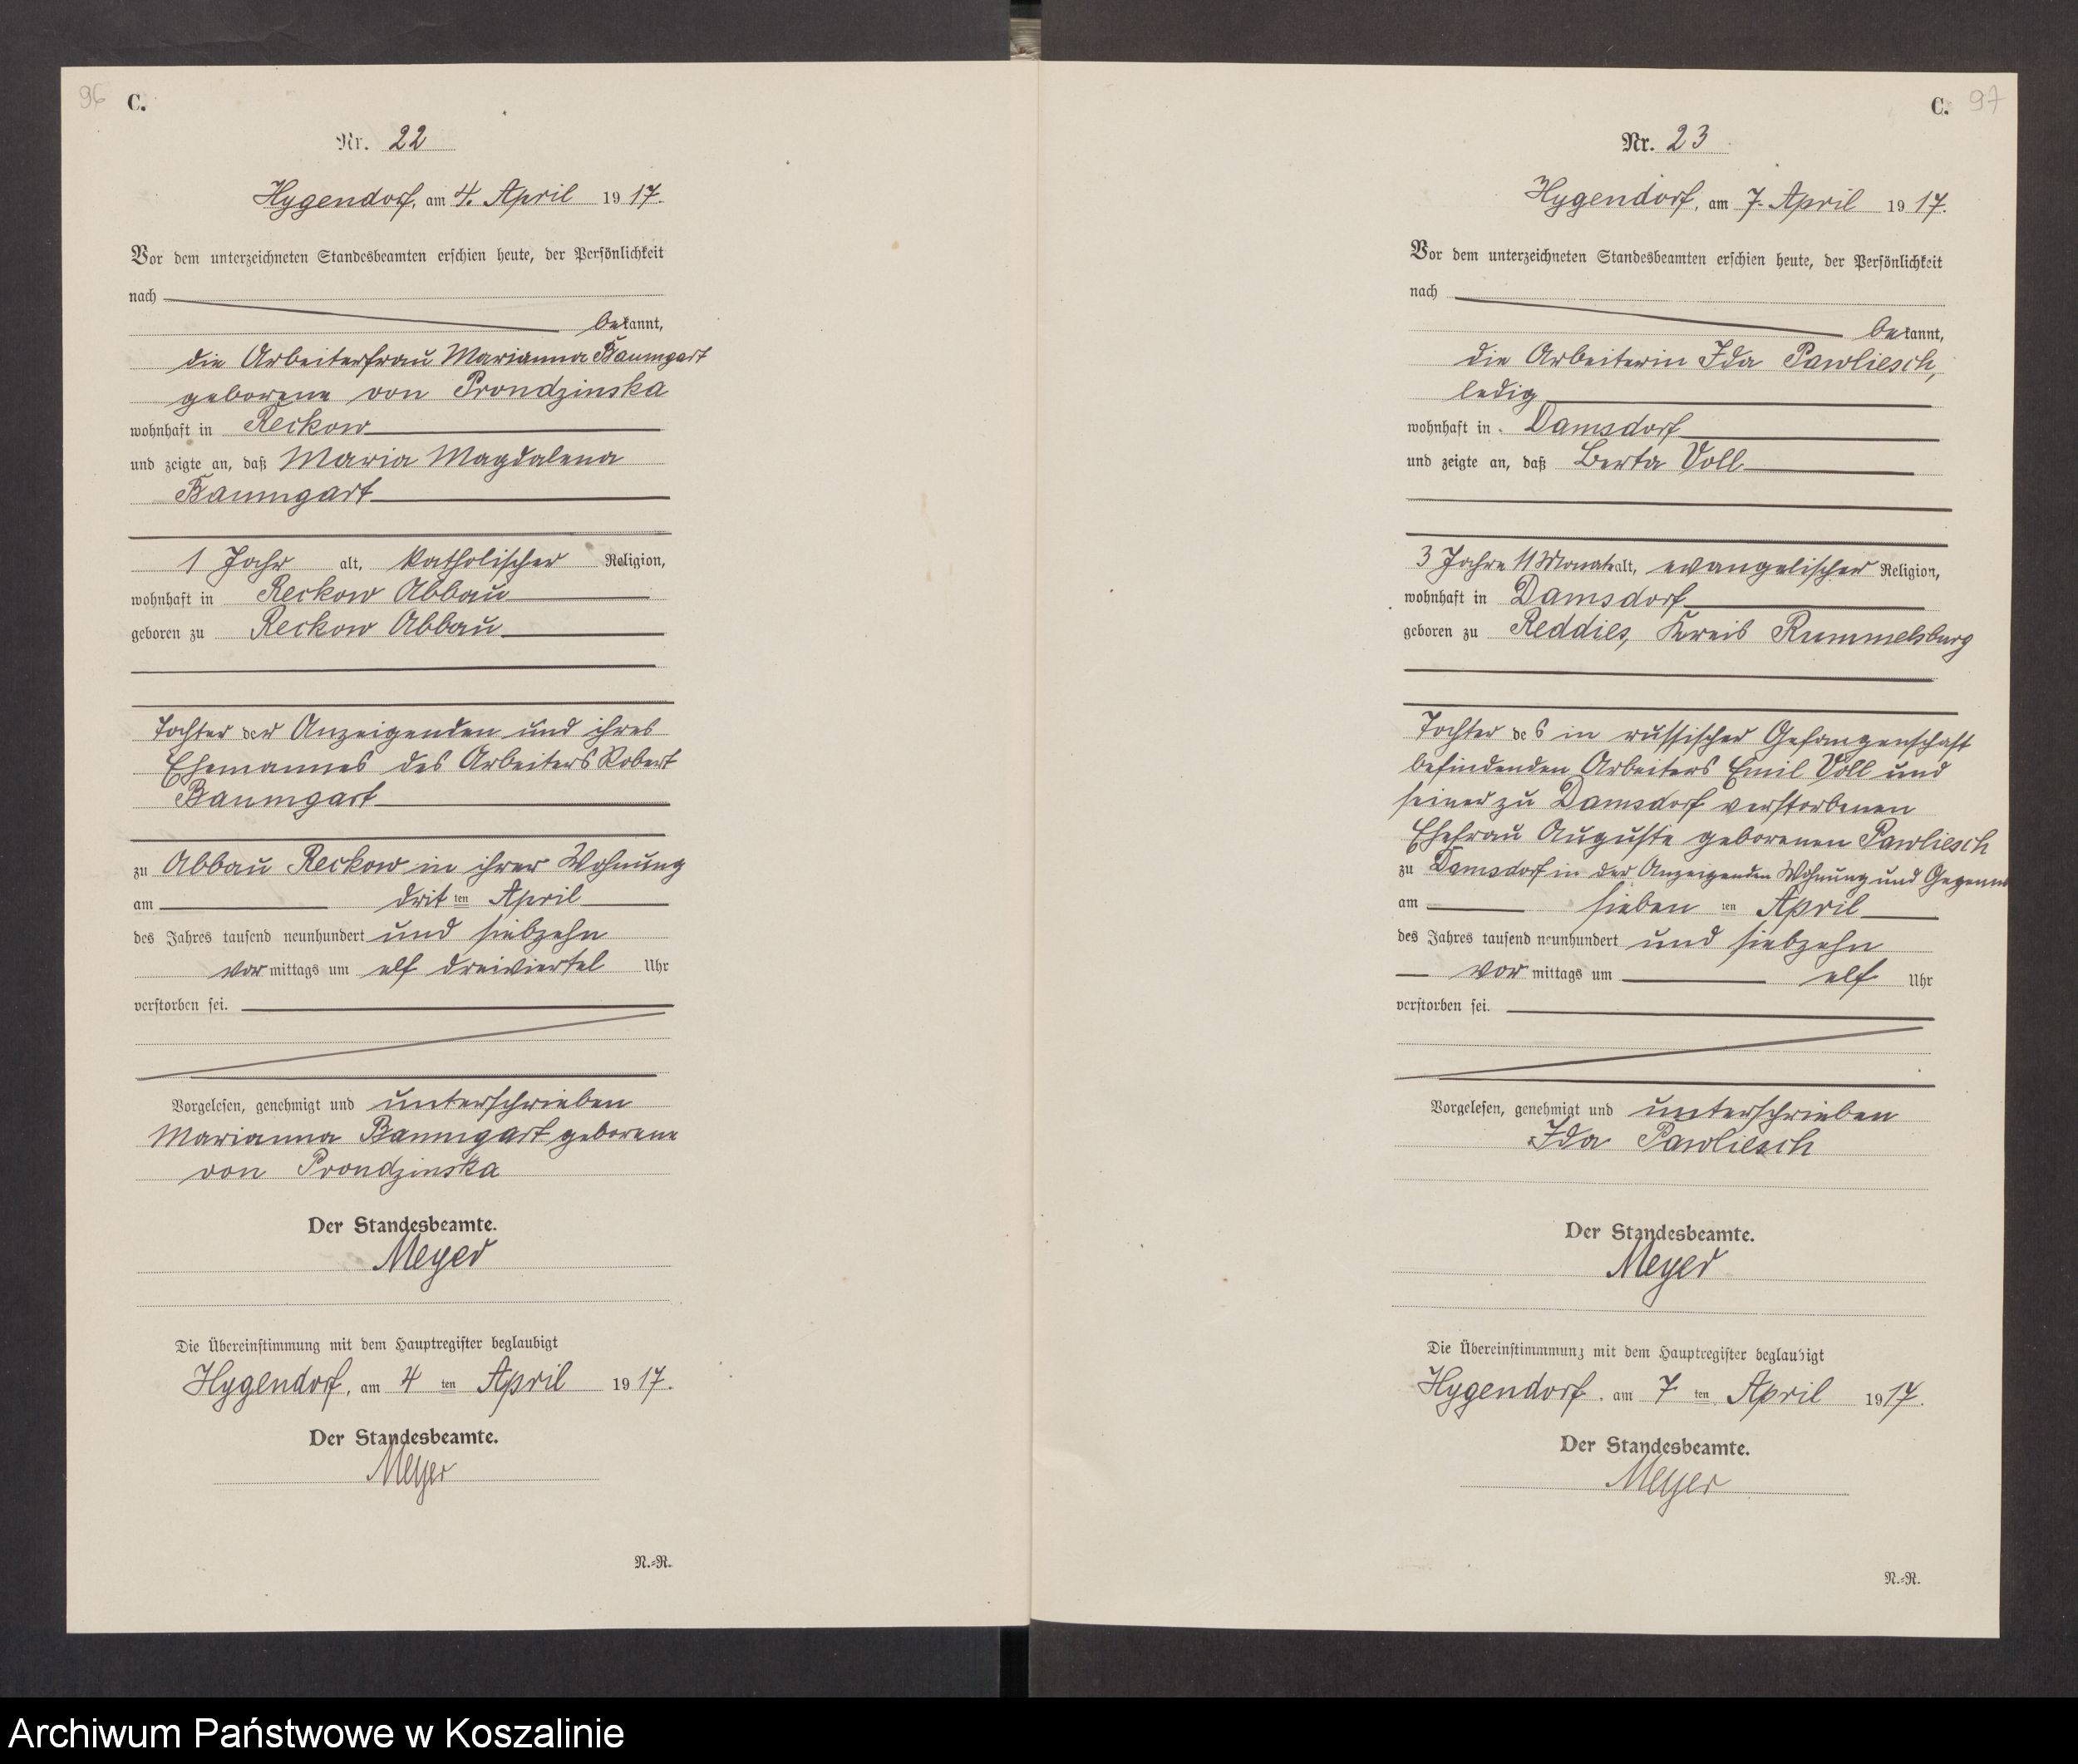 96 C.
Nr. 22
Hygendorf, am 4. April 1917.
Vor dem unterzeichneten Standesbeamten erschien heute, der Persönlichkeit
nach
bekannt,
die Arbeiterfrau Marianna Baumgart
geborene von Prondzinska
wohnhaft in Reckow
und zeigte an, daß Maria Magdalena
Baumgart
1 Jahr alt, katholischer Religion,
wohnhaft in Reckow Abbau
geboren zu Reckow Abbau
Tochter der Anzeigenden und ihres
Ehemannes des Arbeiters Robert
Baumgart
zu Abbau Reckow in ihrer Wohnung
am dritten April
des Jahres tausend neunhundert und siebzehn
vormittags um elf dreiviertel Uhr
verstorben sei.
Vorgelesen, genehmigt und unterschrieben
Marianna Baumgart geborene
von Prondzinska
Der Standesbeamte.
Meyer
Die Übereinstimmung mit dem Hauptregister beglaubigt
Hygendorf, am 4ten April 1917.
Der Standesbeamte.
Meyer
N.=R.
C. 97
Nr. 23
Hygendorf, am 7. April 1917.
Vor dem unterzeichneten Standesbeamten erschien heute, der Persönlichkeit
nach
bekannt,
die Arbeiterin Ida Pawliesch,
ledig
wohnhaft in Damsdorf
und zeigte an, daß Berta Voll
3 Jahre 11 Monate alt, evangelischer Religion,
wohnhaft in Damsdorf
geboren zu Reddies, Kreis Rummelsburg
Tochter des in russischer Gefangenschaft
befindenden Arbeiters Emil Voll und
seiner zu Damsdorf verstorbenen
Ehefrau Auguste geborenen Pawliesch
zu Damsdorf in der Anzeigenden Wohnung und
am siebenten April
des Jahres tausend neunhundert und siebzehn
vormittags um elf Uhr
verstorben sei.
Vorgelesen, genehmigt und unterschrieben
Ida Pawliesch
Der Standesbeamte.
Meyer
Die Übereinstimmung mit dem Hauptregister beglaubigt
Hygendorf. am 7ten April 1917.
Der Standesbeamte.
Meyer
N.=R.
Archiwum Państwowe w Koszalinie